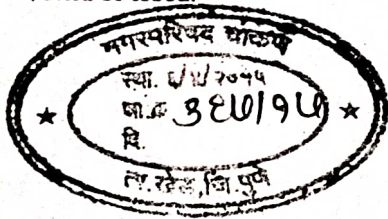 नगरपरिषद चाकण
स्था. ६/४/२०१५
जा.क्र ३९७/१७
दि.
ता. खेड, जि. पुणे